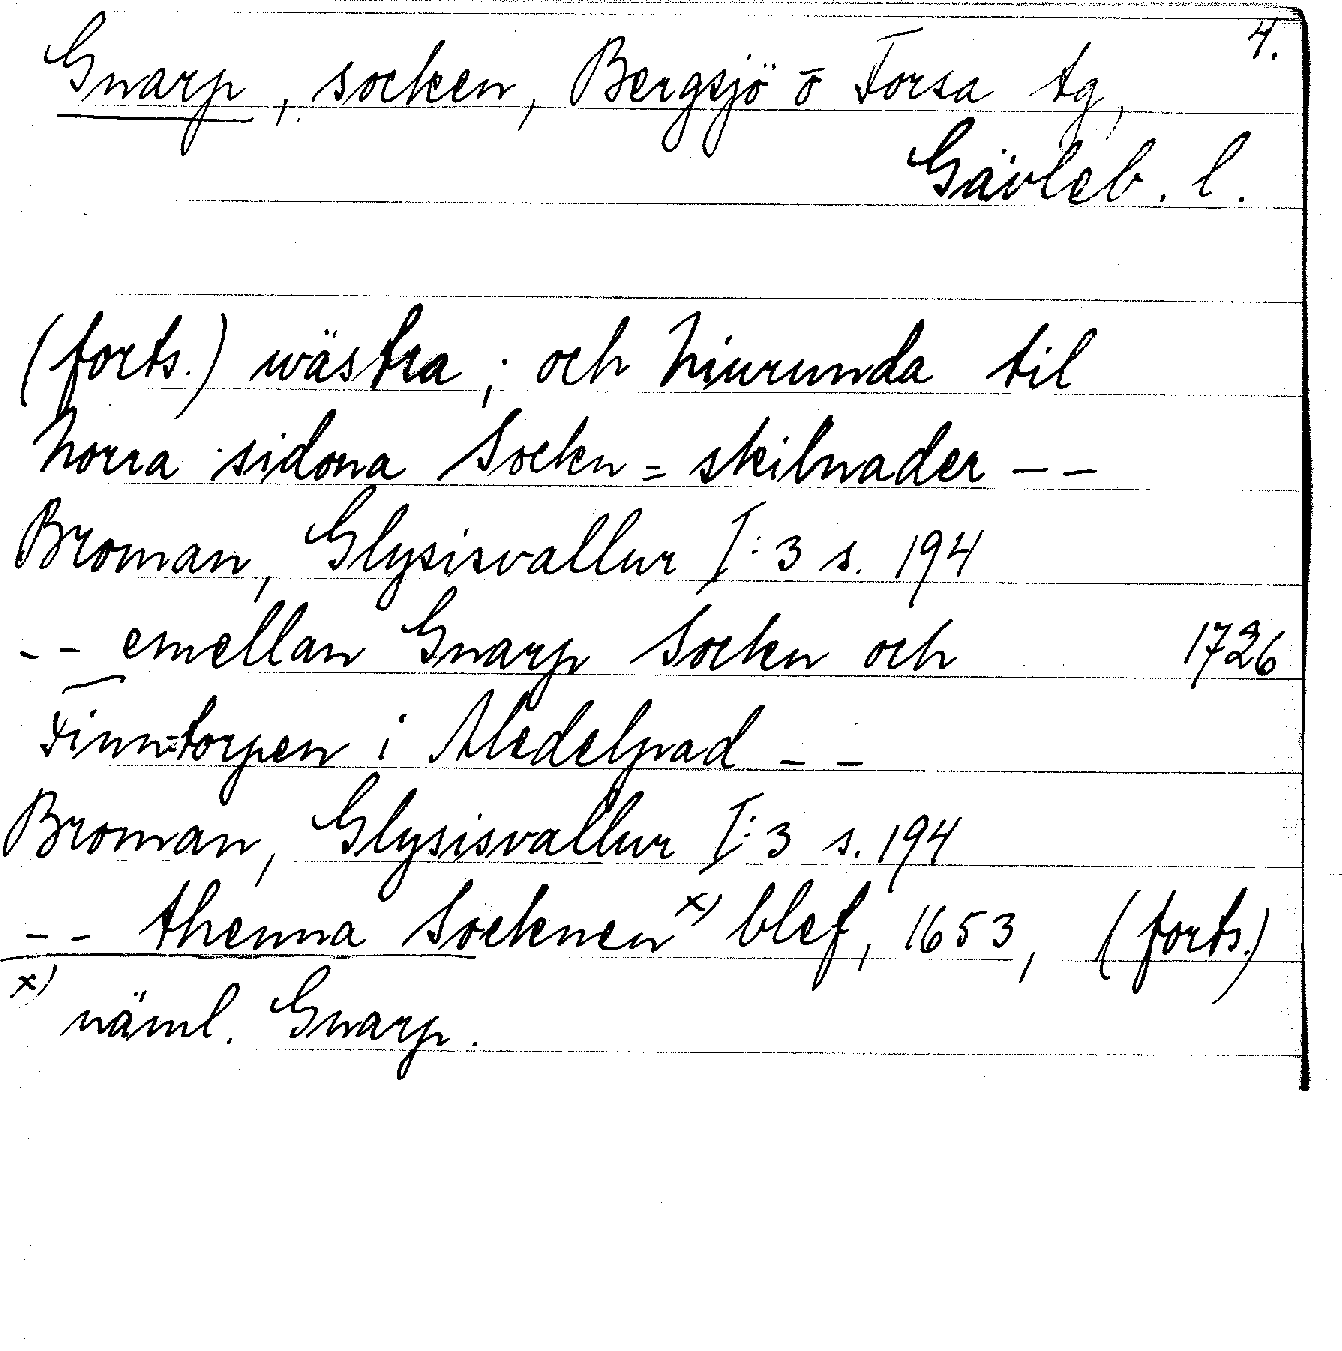 4.
Gnarp, socken, Bergsjö o Forsa tg,
Gävleb. l.
(forts.) wästra; och Niurunda til
Norra sidona Sockn=skilnader --
Broman, Glysisvallur I:3 s. 194
-- emellan Gnarp Sockn och 1726
Finn=torpen i Medelpad --
Broman, Glysisvallur I:3 s. 194
-- thenna Socknen x) blef, 1653, (forts.)
x) näml. Gnarp.